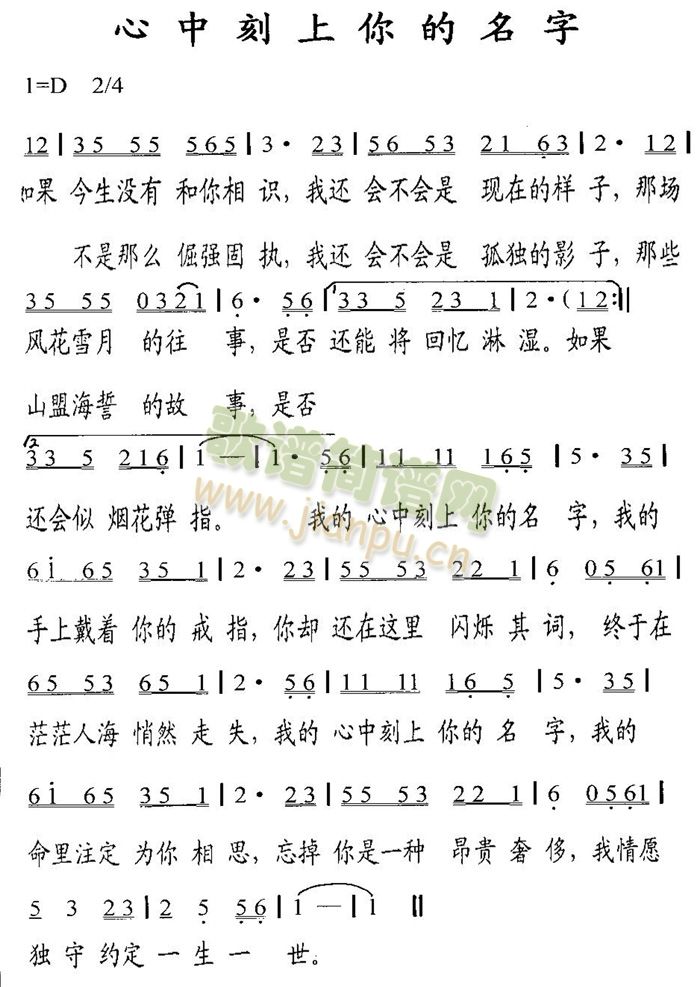 心中刻上你的名字
1=D 2/4
12 | 35 55 565 | 3· 23 | 56 53 21 63 | 2· 12 |
如果 今生没有 和你相 识,我还 会不会是 现在的样 子,那场
不是那么 倔强固 执,我还 会不会是 孤独的影 子,那些
35 55 0321 | 6· 56 | 33 5 23 1 | 2·(12 :||
风花雪月 的往 事,是否 还能 将 回忆 淋 湿。如果
山盟海誓 的故 事,是否
33 5 216 | 1 — | 1· 56 | 11 11 165 | 5· 35 |
还会似 烟花弹 指。 我的 心中刻上 你的名 字,我的
61 65 35 1 | 2· 23 | 55 53 22 1 | 6 05 61 |
手上戴着 你的 戒 指,你却 还在这里 闪烁 其 词, 终于在
65 53 65 1 | 2· 56 | 11 11 16 5 | 5· 35 |
茫茫人海 悄然 走 失,我的 心中刻上 你的 名 字,我的
61 65 35 1 | 2· 23 | 55 53 22 1 | 6 0561 |
命里注定 为你 相 思,忘掉 你是一种 昂贵 奢 侈,我情愿
5 3 23 | 2 5 56 | 1 — | 1 ||
独 守 约定 一 生 一 世。
歌谱简谱网
www.jianpu.cn